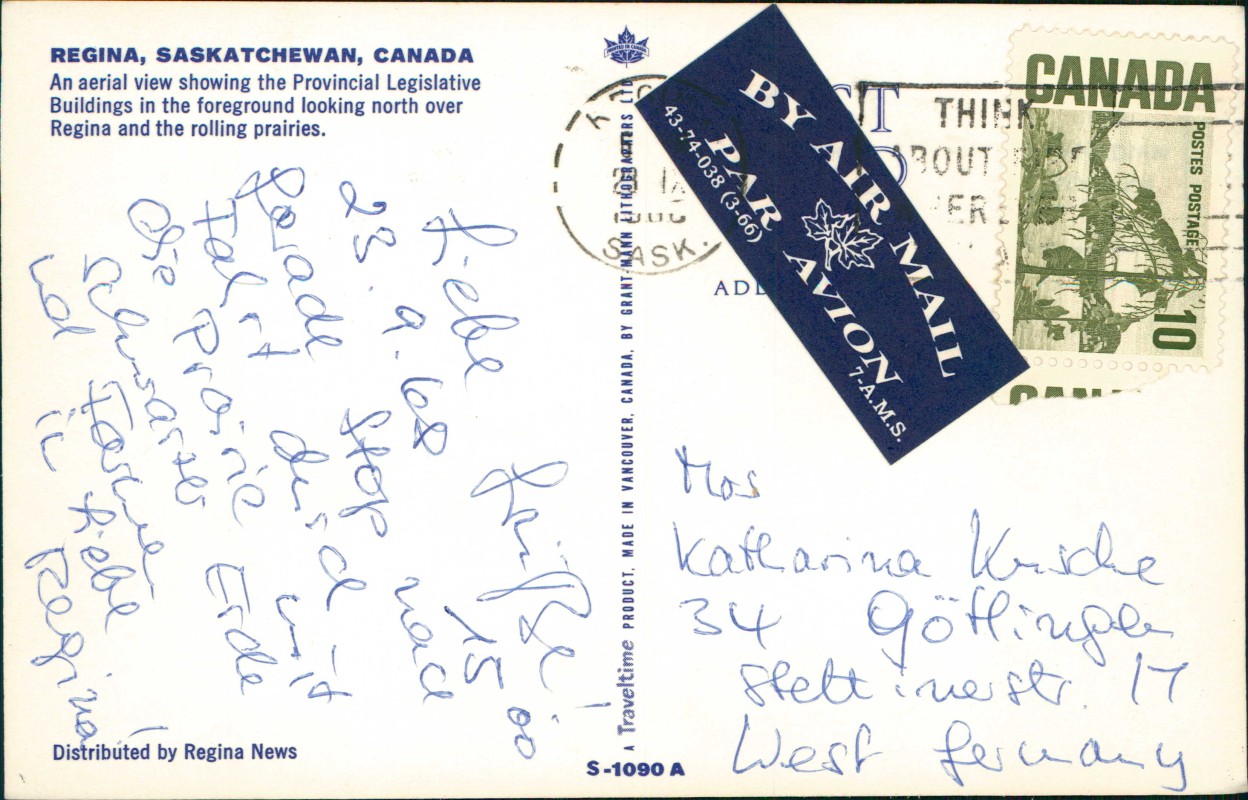 REGINA, SASKATCHEWAN, CANADA
An aerial view showing the Provincial Legislative
Buildings in the foreground looking north over
Regina and the rolling prairies.
Liebe Grüße!
23. 9. 68 15 00
Gerade Stop nach
Fahrt durch
Prärie mit
Schwarzer Erde
und Farmen
in
Regina!
Distributed by Regina News
A Traveltime PRODUCT, MADE IN VANCOUVER, CANADA, BY GRANT-MANN LITHOGRAPHERS LTD.
S-1090 A
PRINTED IN CANADA
SASK.
THINK
ABOUT
BY AIR MAIL
PAR AVION
43-74-038 (3-66)
7-A.M.S.
CANADA
POSTES POSTAGE
10
CANADA
Katharina
34 Göttingen
Stettinerstr. 17
West Germany